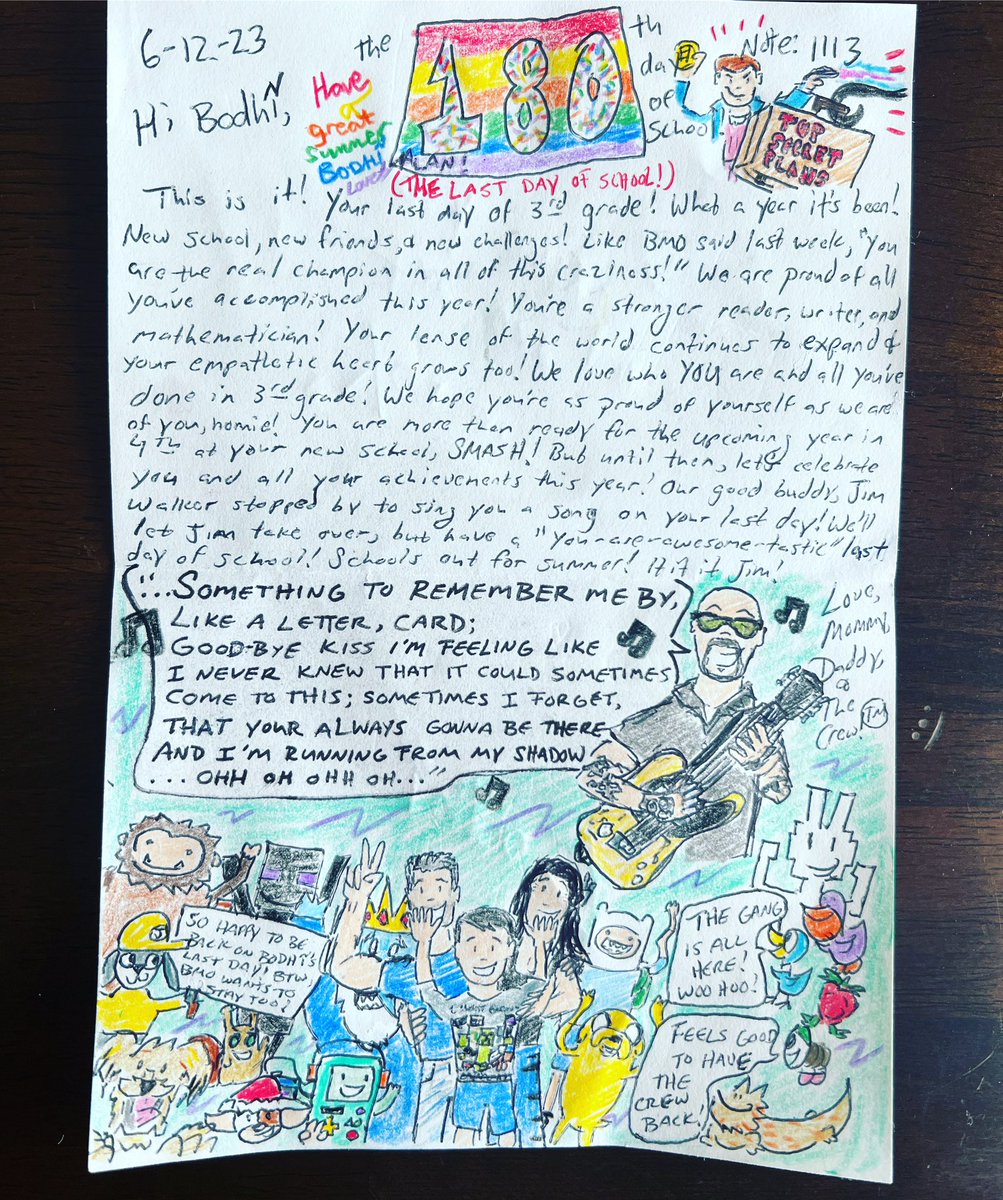 6-12-23
Hi Bodhi,
Have
a
great
summer
BODHI
Love, ALAN!
the 180th day of School
(THE LAST DAY OF SCHOOL!)
Note: 1113
TOP
SECRET
PLANS
This is it! Your last day of 3rd grade! What a year it's been!
New School, new friends, & new challenges! Like BMO said last week, "You
are the real champion in all of this craziness!" We are proud of all
you've accomplished this year! You're a stronger reader, writer, and
mathematician! Your lense of the world continues to expand &
your empathetic heart grows too! We love who YOU are and all you've
done in 3rd grade! We hope you're as proud of yourself as we are
of you, homie! You are more then ready for the upcoming year in
4TH at your new school, SMASH! But until then, let's celebrate
you and all your achievements this year! Our good buddy, Jim
Walker stopped by to sing you a song on your last day! We'll
let Jim take over, but have a "You-are-awesome-tastic" last
day of school! Schools out for summer! Hit it Jim!
Love,
Mommy,
Daddy,
&
The
Crew! TM
:)
"...SOMETHING TO REMEMBER ME BY,
LIKE A LETTER, CARD;
GOOD-BYE KISS I'M FEELING LIKE
I NEVER KNEW THAT IT COULD SOMETIMES
COME TO THIS; SOMETIMES I FORGET,
THAT YOUR ALWAYS GONNA BE THERE
AND I'M RUNNING FROM MY SHADOW
...OHH OH OHH OH..."
SO HAPPY TO BE
BACK ON BODHI'S
LAST DAY! BTW,
BMO WANTS TO
STAY TOO!
THE GANG
IS ALL
HERE!
WOO HOO!
FEELS GOOD
TO HAVE
THE
CREW
BACK!